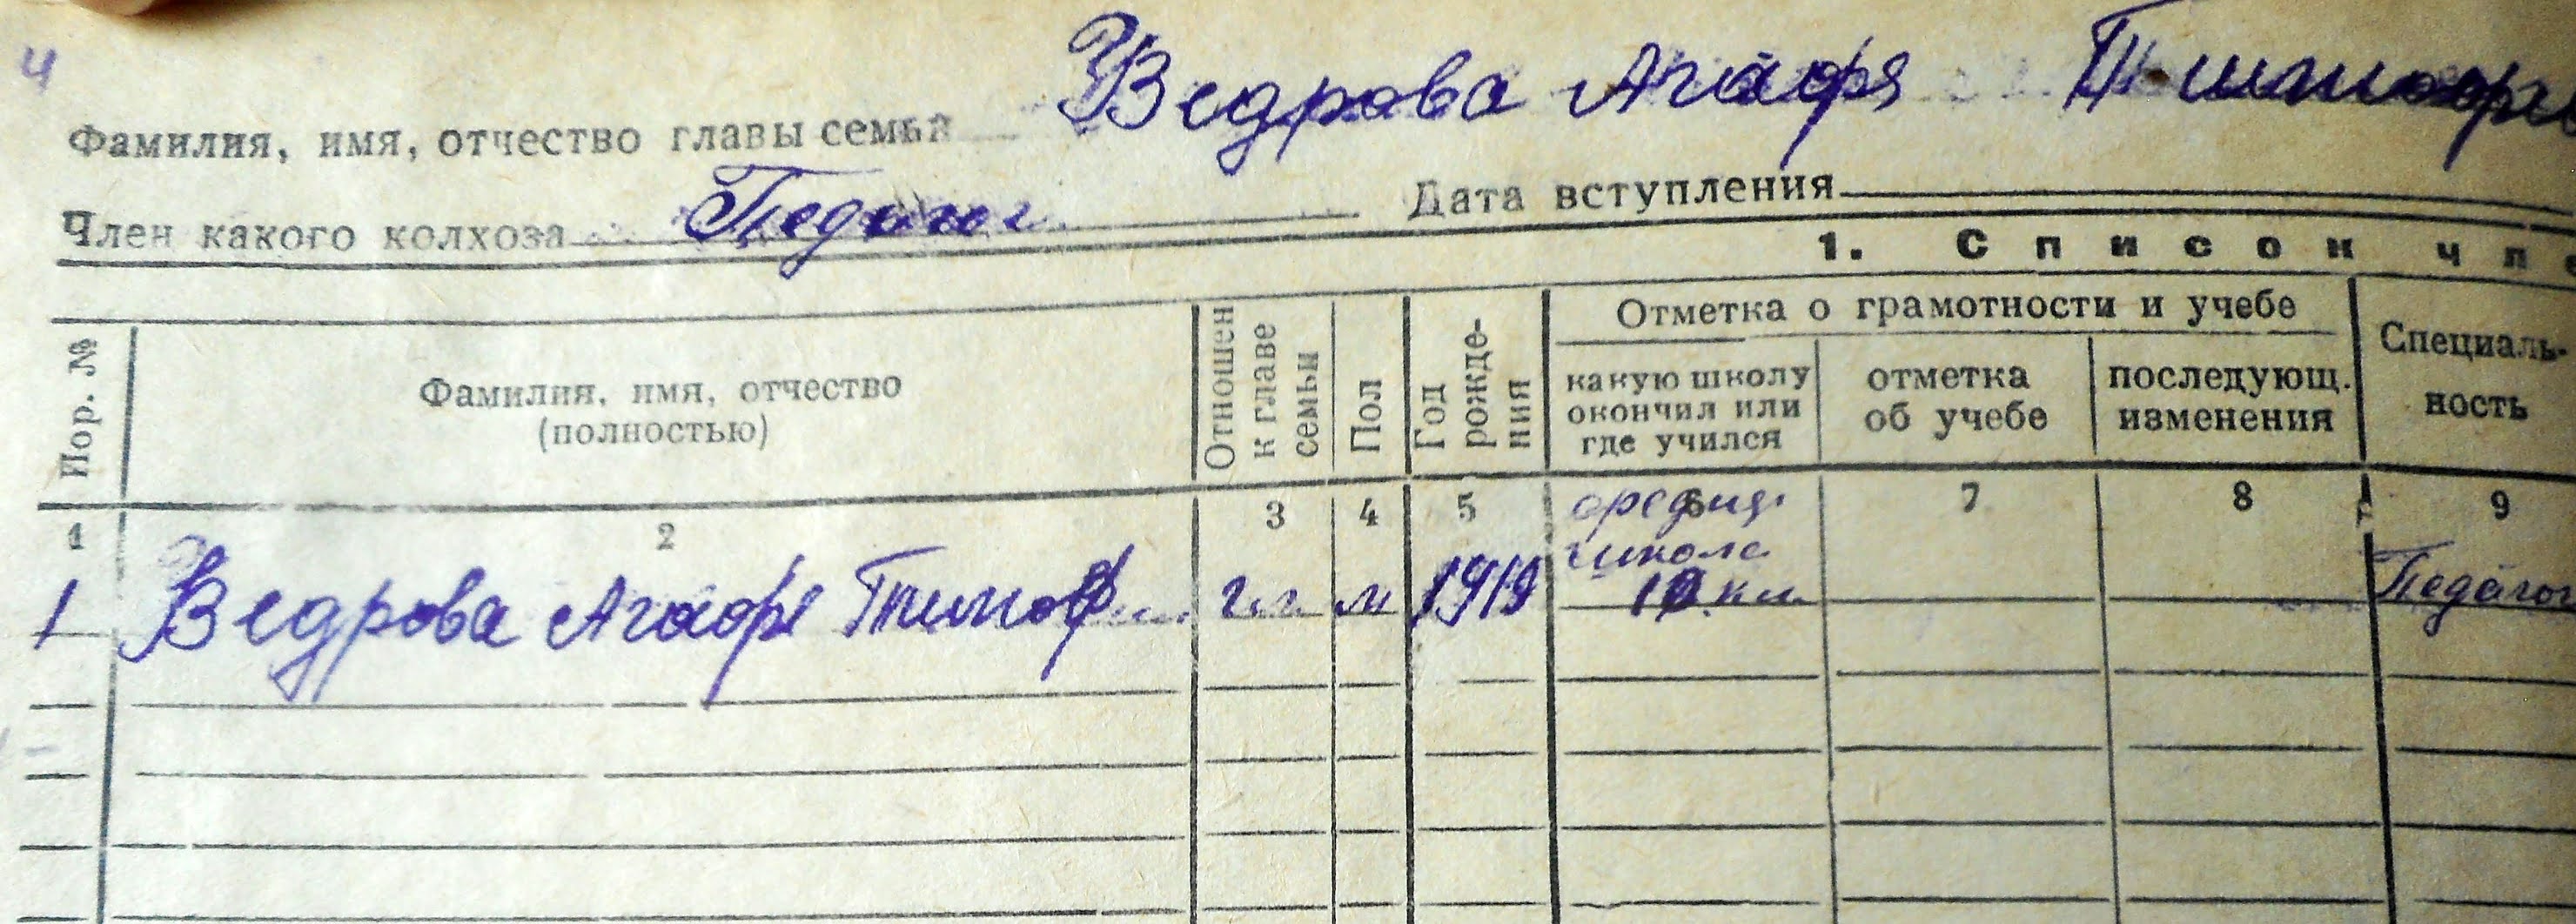 4
Фамилия, имя, отчество главы семьи Ведрова Агафя Тимофе
Член какого колхоза Педагог Дата вступления
1. Список чле
Пор. №
Фамилия, имя, отчество (полностью)
Отношен. к главе семьи
Пол
Год рождения
Отметка о грамотности и учебе
какую школу окончил или где учился
отметка об учебе
последующ. изменения
Специальность
1 2 3 4 5 6 7 8 9
1 Ведрова Агафе Тимоф гл. м 1919 средня школа 10 кл. Педагог